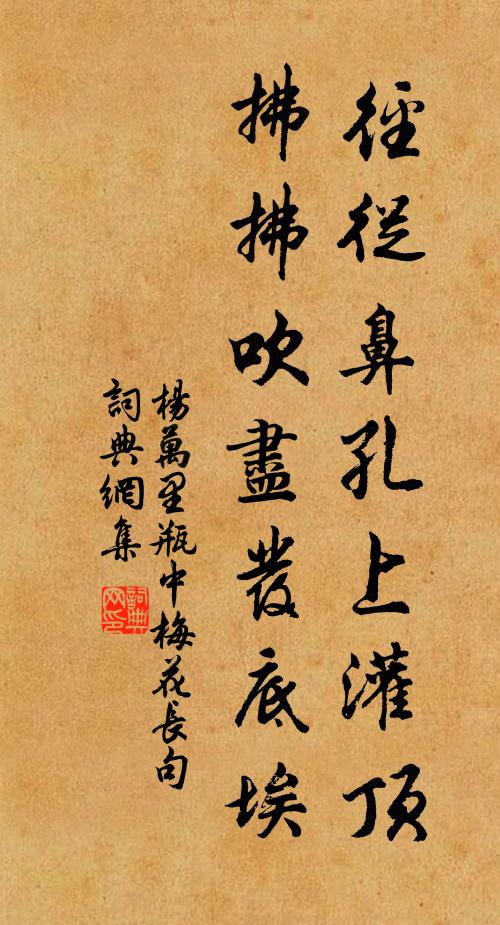 徑從鼻孔上灌頂
拂拂吹盡發底埃
楊萬里瓶中梅花長句
詞典網集
詞典网印